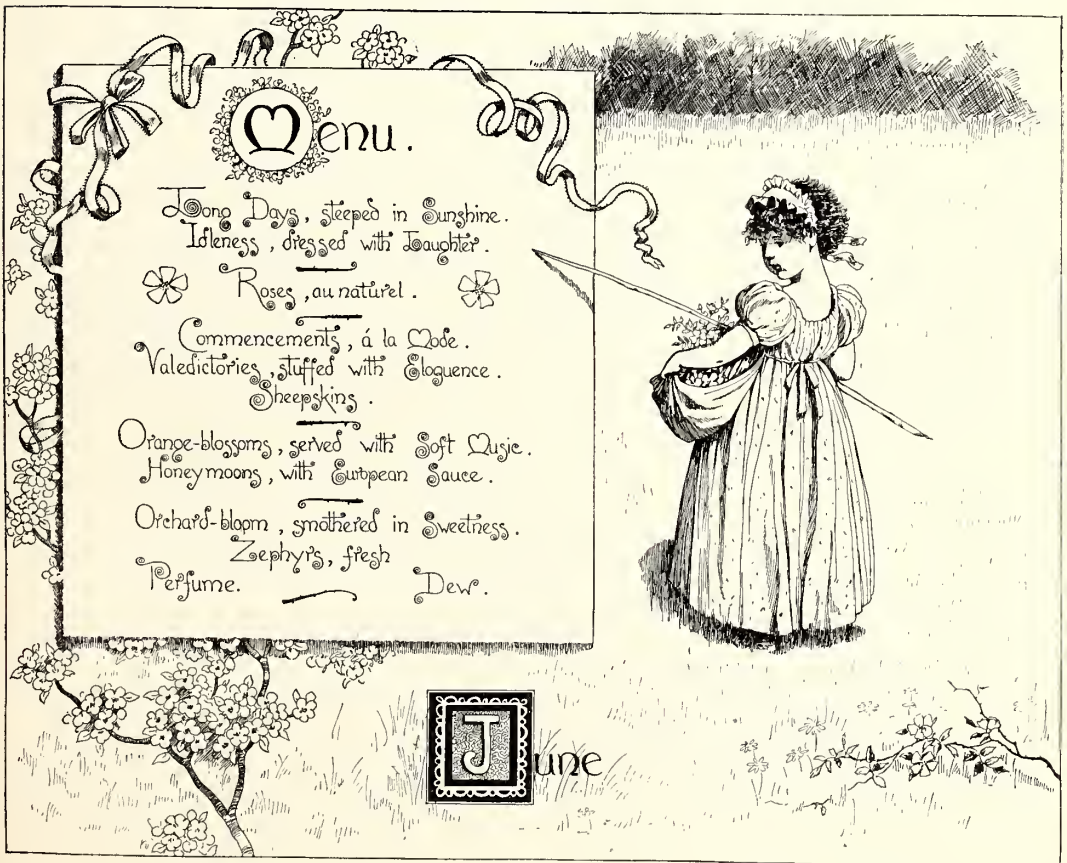 Menu.
Long Days, steeped in Sunshine.
Idleness, dressed with Laughter.
Roses, au naturel.
Commencements, á la Mode.
Valedictories, stuffed with Eloquence.
Sheepskins.
Orange-blossoms, served with Soft Music.
Honeymoons, with European Sauce.
Orchard-bloom, smothered in Sweetness.
Zephyrs, fresh
Perfume. Dew.
June